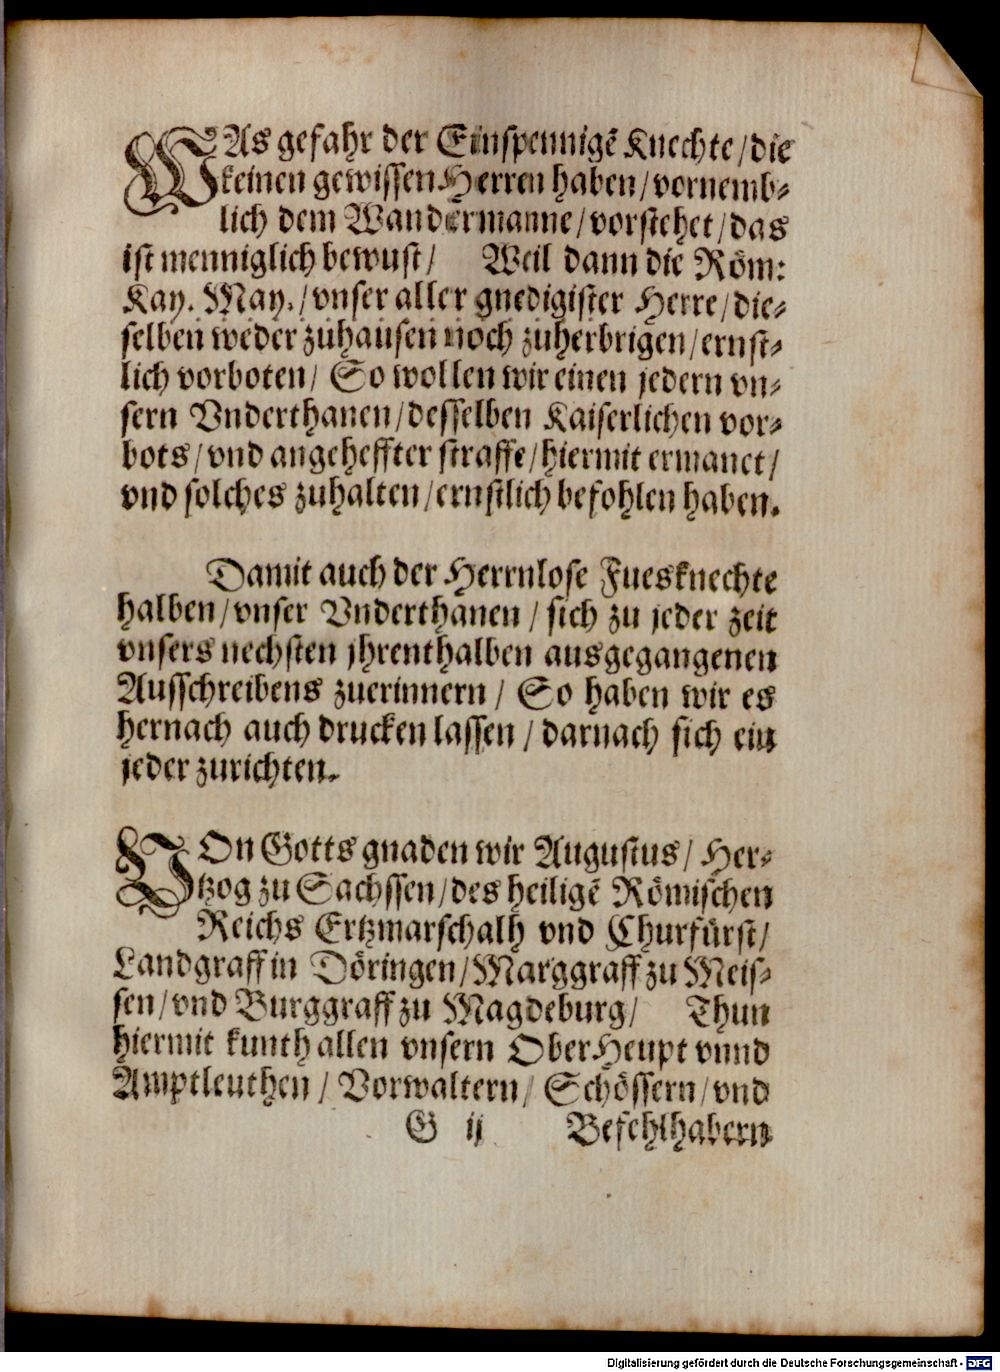 WAs gefahr der Einspennigẽ Knechte/die
keinen gewissen Herren haben/vornemb-
lich dem Wandermanne/vorstehet/das
ist menniglich bewust/ Weil dann die Röm:
Kay. May./vnser aller gnedigister Herre/die-
selben weder zuhausen noch zuherbrigen/ernst-
lich vorboten/ So wollen wir einen jedern vn-
sern Vnderthanen/desselben Kaiserlichen vor-
bots/vnd angeheffter straffe/hiermit ermanet/
vnd solches zuhalten/ernstlich befohlen haben.
Damit auch der Herrnlose Fuesknechte
halben/vnser Vnderthanen/ sich zu jeder zeit
vnsers nechsten jhrenthalben ausgegangenen
Ausschreibens zuerinnern/ So haben wir es
hernach auch drucken lassen/ darnach sich ein
jeder zurichten.
VOn Gotts gnaden wir Augustus/ Her-
tzog zu Sachssen/des heiligẽ Römischen
Reichs Ertzmarschalh vnd Churfürst/
Landgraff in Döringen/Marggraff zu Meis-
sen/vnd Burggraff zu Magdeburg/ Thun
hiermit kunth allen vnsern OberHeupt vnnd
Amptleuthen/ Vorwaltern/ Schössern/vnd
G ij Befehlhabern
Digitalisierung gefördert durch die Deutsche Forschungsgemeinschaft - DFG